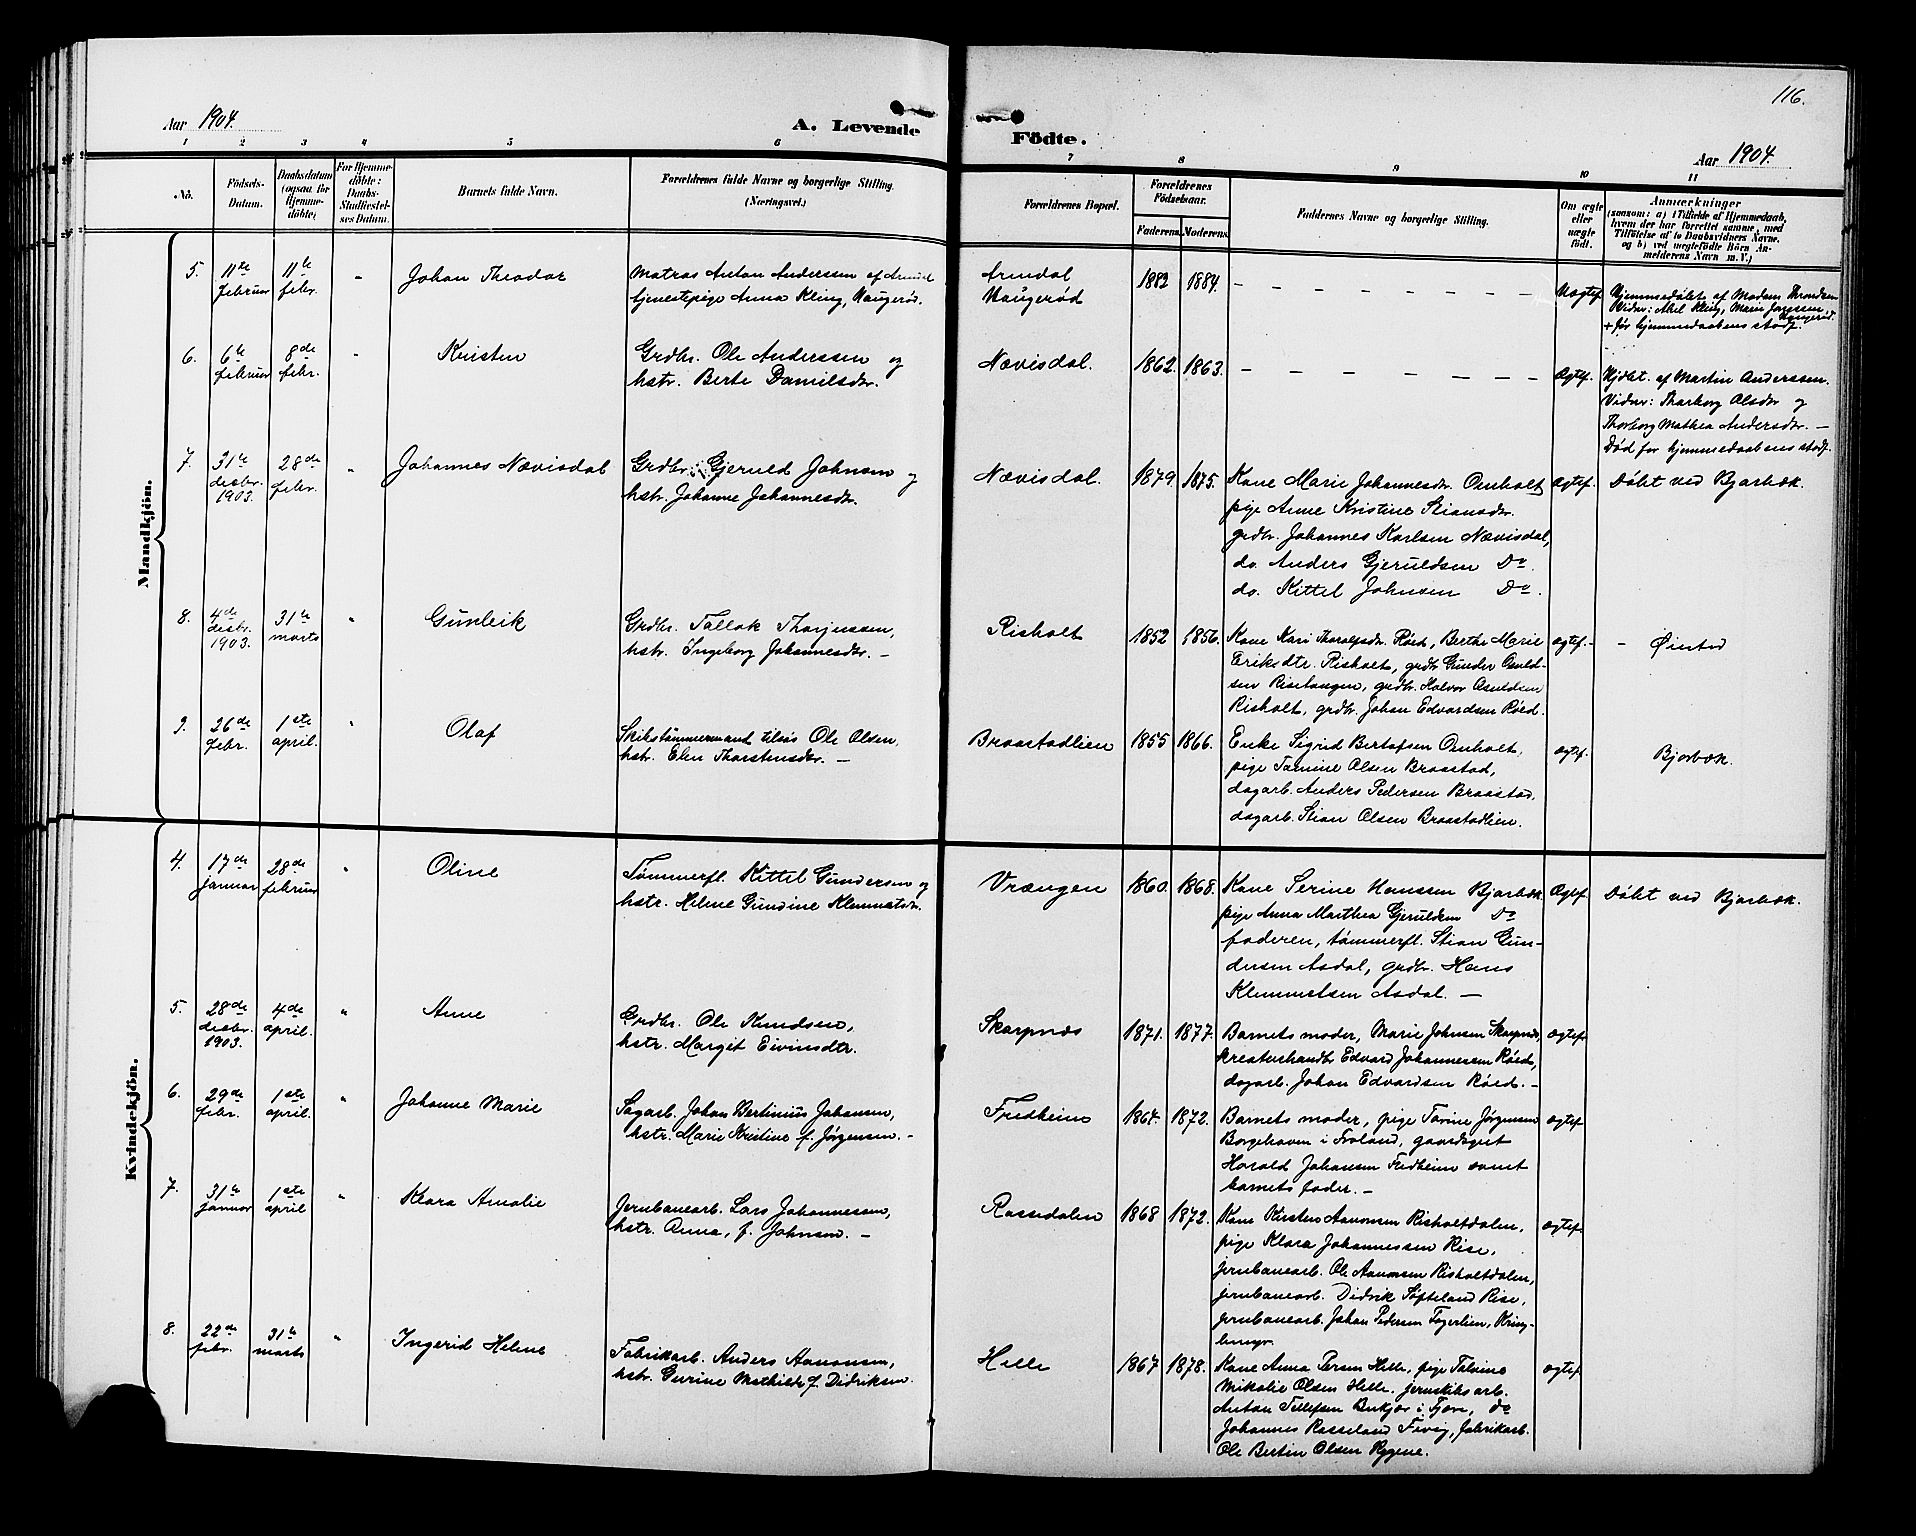 116.
Aar 1904.
A. Levende Födte.
Aar 1904.
1 2 3 4 5 6 7 8 9 10 11
No.
Födsels-
Datum.
Daabsdatum
(ogsaa for
Hjemme-
döbte)
For Hjemme-
döbte:
Daabs-
Stadfæstel-
ses Datum.
Barnets fulde Navn.
Forældrenes fulde Navne og borgerlige Stilling.
(Næringsvei.)
Forældrenes Bopæl.
Forældrenes
Födselsaar.
Faderens. Moderens.
Faddernes Navne og borgerlige Stilling.
Om ægte
eller
uægte
födt.
Anmærkninger
(saasom: a) i Tilfælde af Hjemmedaab,
hvem der har forrettet samme, med
Tilföielse af to Daabsvidners Navne,
og b) ved uægtefödte Börn An-
melderens Navn m. V.)
Mandkjön.
5. 11te februar 11te febr. " Johan Theodor
Matros Anton Anderssen af Arendal
tjenestepige Anna Kling, Haugerød.
Arendal
Haugerød
1882 1884. – – – – – – – –
Uægtef.
Hjemmedøbt af Madam Throndsen
Vidner: Abel Kling, Marie Jørgensen
Haugerød.
+ før hjemmedaabens stadf.
6. 6te februar 8de febr. " Kristen
Grdbr. Ole Anderssen og
hstr. Berte Danielsdtr.
Nævisdal. 1862. 1863. – – – – – – – –
Ægtef.
Hjdbt. af Martin Anderssen.
Vidner: Tharborg Olsdtr og
Thorborg Mathea Andersdtr. –
Død før hjemmedaabens stadf.
7. 31te desbr. 1903. 28de febr. " Johannes Nævisdal
Grdbr. Gjeruld Johnsen og
hstr. Johanne Johannesdtr.
Nævisdal. 1879. 1875.
Kone Marie Johannesdtr. Osuholt
pige Anne Kristine Stiansdtr.
grdbr. Johannes Karlsen Nævisdal,
do. Anders Gjeruldsen Do.
do. Kittel Johnsen Do.
ægtef. Døbt ved Bjorbæk.
8. 4de desbr. 1903. 31te marts " Gunleik
Grdbr. Tallak Thorjussen,
hstr. Ingeborg Johannesdtr. –
Risholt 1852 1856.
Kone Kari Tharalfsdtr. Røed, Berthe Marie
Eriksdtr. Risholt, grdbr Gunder Osuld-
sen Risetangen, grdbr. Halvor Osuldsen
Risholt, grdbr. Johan Edvardsen Røed.
ægtef. – – Øiestad
9. 26de febr. 1ste april. " Olaf
Skibstømmermand tilsøs Ole Olsen,
hstr. Elen Thorstensdtr. –
Braastadlien 1855 1866.
Enke Sigrid Bertofsen Osuholt,
pige Tomine Olsen Braastad,
dagarb. Anders Pedersen Braastad,
dagarb. Stian Olsen Braastadlien.
ægtef. Bjorbæk.
Kvindekjön.
4. 17de januar 28de februar " Oline
Tømmerfl. Kittel Gundersen og
hstr. Helene Gundine Klemmetsdtr.
Vrængen 1860. 1868.
Kone Serine Hanssen Bjorbæk
pige Anna Marthea Gjeruldsen Do
faderen, tømmerfl. Stian Gun-
dersen Asdal, grdbr. Hans
Klemmetsen Asdal. –
Ægtef. Døbt ved Bjorbæk.
5. 28de desbr. 1903. 4de april. " Anne
Grdbr. Ole Knudsen,
hstr. Margit Eivindsdtr.
Skarpnæs 1871. 1877.
Barnets moder, Marie Johnsen Skarpnæs,
kreaturhandler Edvard Johannessen Røed,
dagarb. Johan Edvardsen Røed. –
ægtef
6. 29de febr. 1ste april. " Johanne Marie
Sagarb. Johan Bertinius Johansen,
hstr. Marie Kristine f. Jørgensen. –
Fredheim 1864. 1872.
Barnets moder, pige Tomine Jørgensen
Borgehaven i Froland, gaardsgut
Harald Johansen Fredheim samt
barnets fader. –
ægtef
7. 31te januar 1ste april " Klara Amalie
Jernbanearb. Lars Johannessen,
hstr. Anna, f. Johnsen. –
Rossedalen 1868 1872.
Kone Kirsten Aanonsen Risholtdalen,
pige Klara Johannessen Rise,
jernbanearb. Ole Aanonsen Risholtdalen,
jernbanearb. Didrik Softeland Rise,
jernbanearb. Johan Pedersen Fagerlien, Kring-
lemyr.
ægtef.
8. 22de febr. 31te marts " Ingerid Helene
Fabrikarb. Anders Aanonsen,
hstr. Gurine Mathilde f. Didriksen.
Helle 1867 1878.
Kone Anna Persen Helle, pige Talvine
Mikalie Olsen Helle, jernskibsarb.
Anton Tellefsen Birkjær i Fjære, do
Johannes Rosseland Fevig, fabrikarb.
Ole Bertin Olsen Rygene.
ægtef